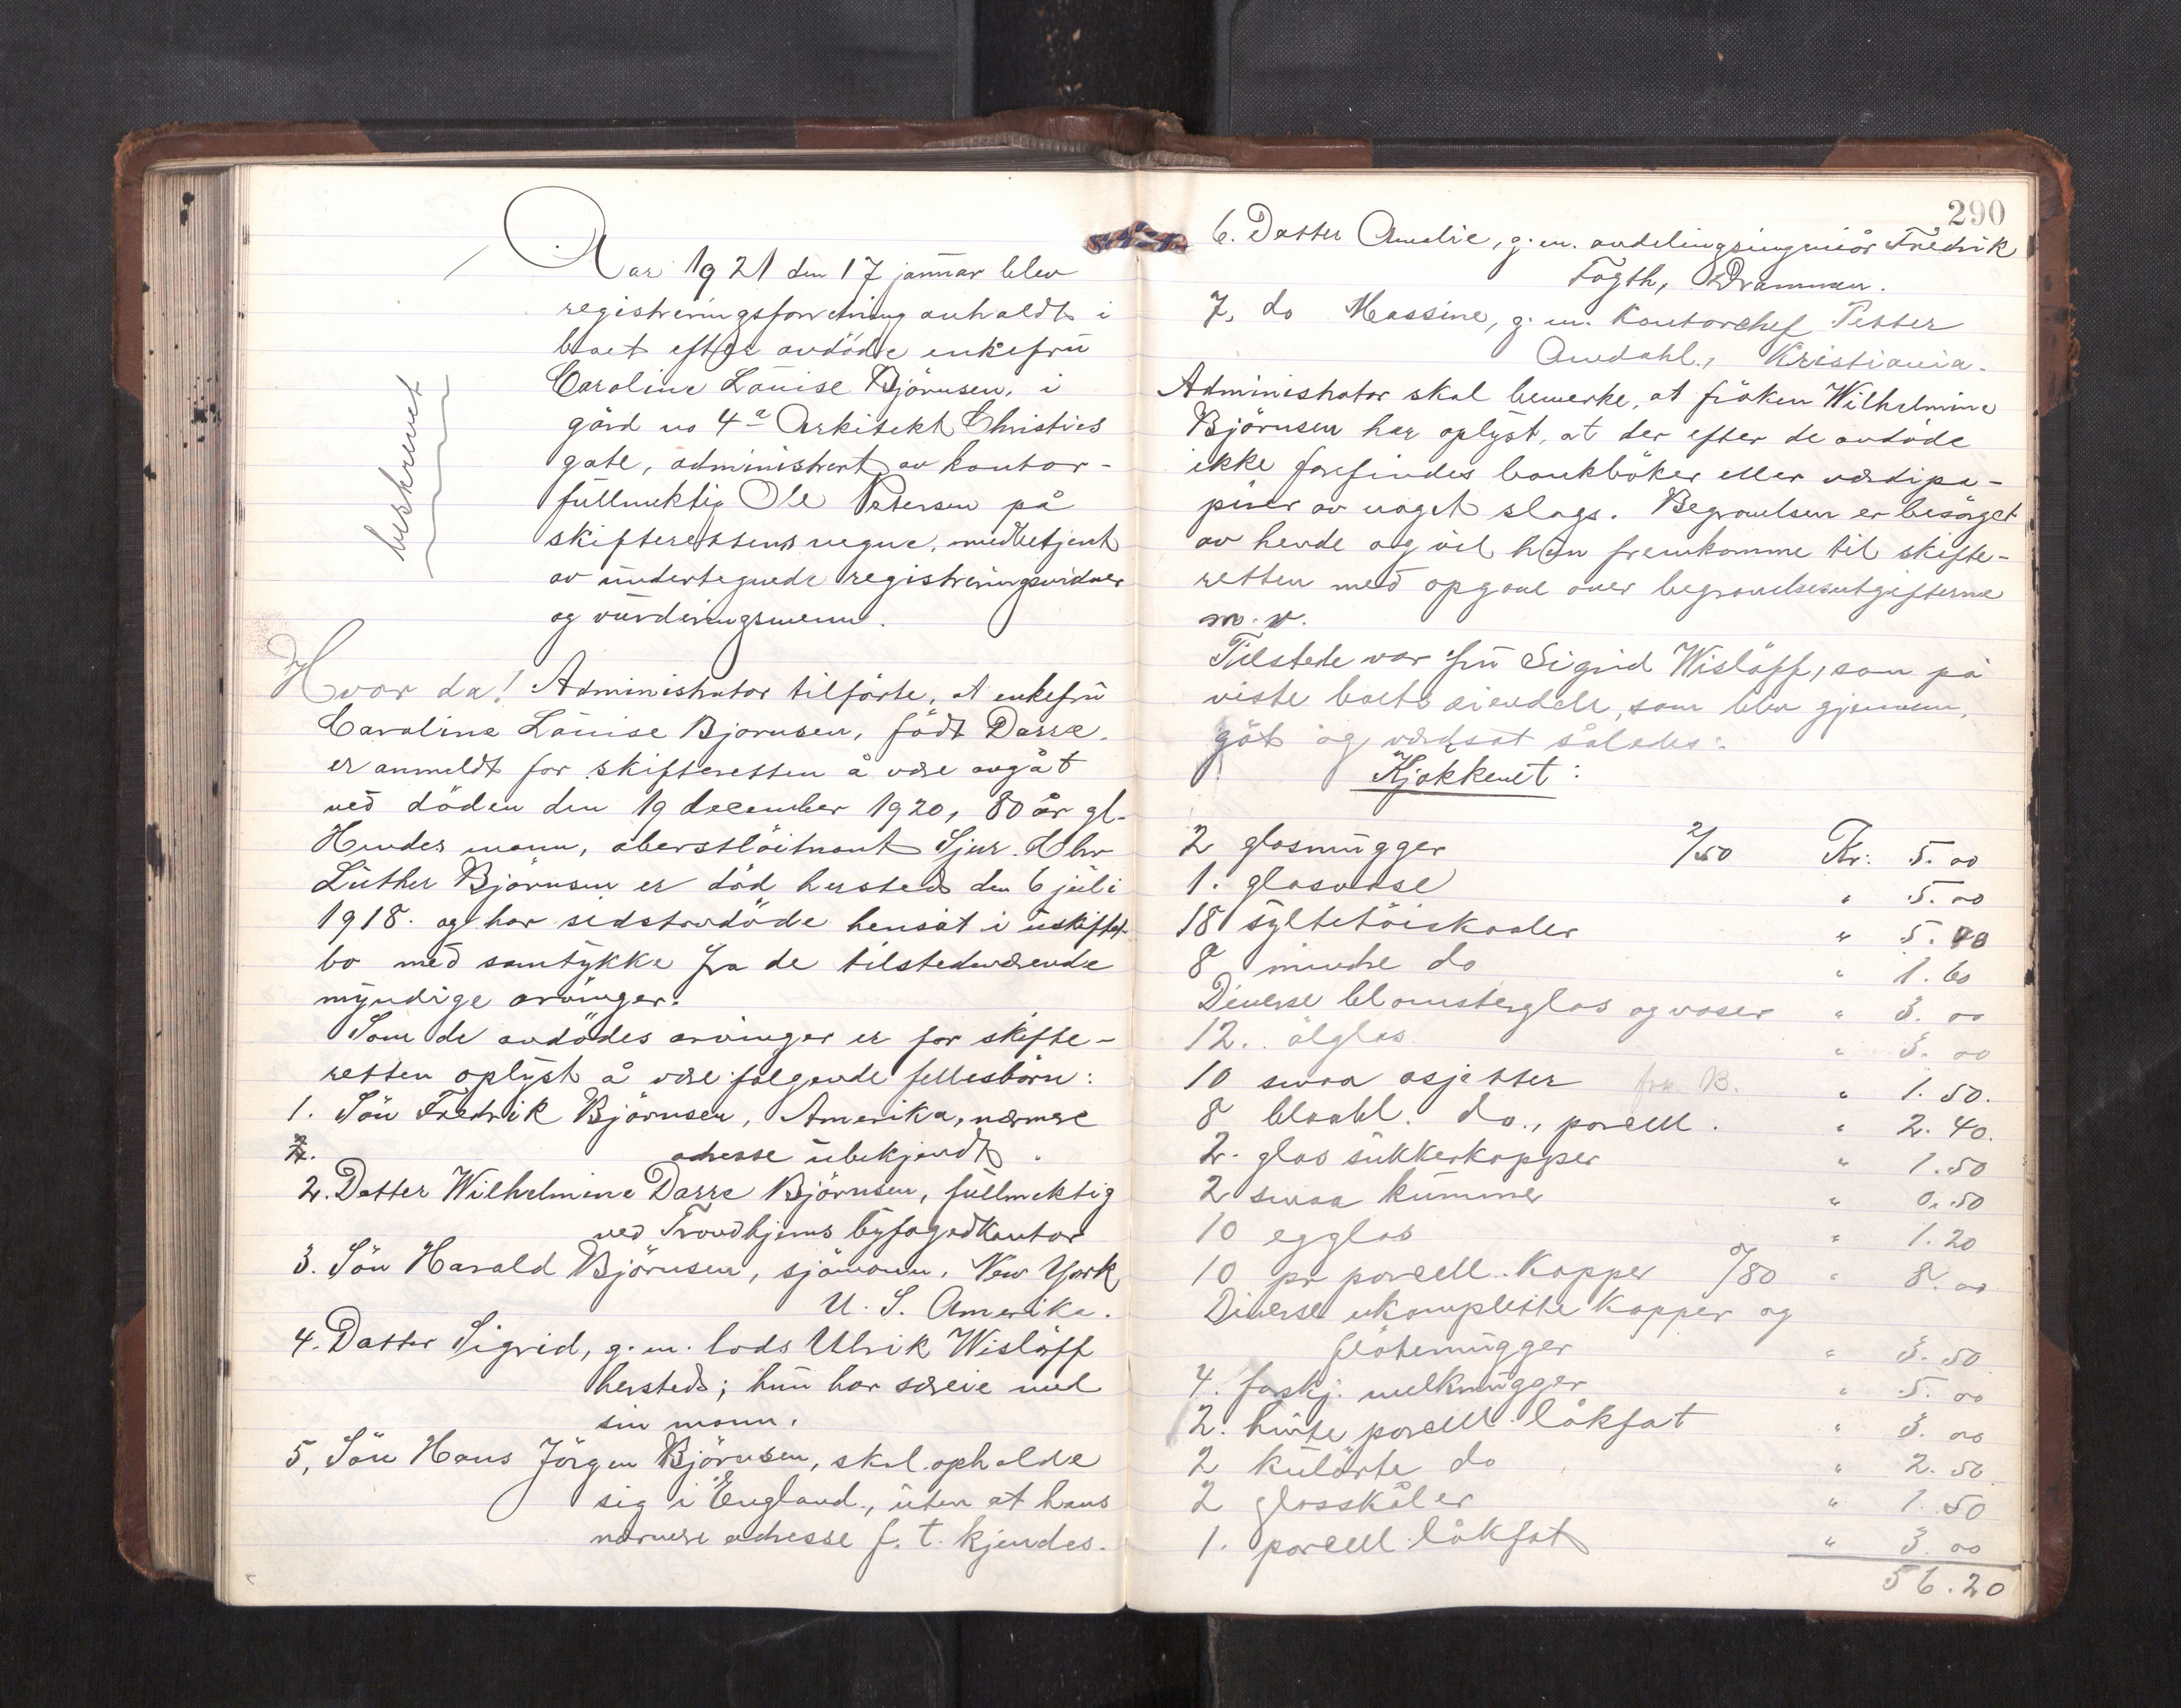 Aar 1921 den 17 januar blev
registreringsforretning avholdt i
boet efter avdöde enkefru
Caroline Louise Björnsen, i
gård no 4a Arkitekt Christies
gate, administrert av kontor-
fullmektig Ole Petersen på
skifterettens vegne, medbetjent
av undertegnede registreringsvidner
og vurderingsmenn.
beskrevet
Hvor da! Administrator tilförte, at enkefru
Caroline Louise Bjornsen, född Darre.
er anmeldt for skifteretten å være avgåt
ved döden den 19 december 1920, 80 år gl.
Hendes mann, oberstlöitnant Sjur Chr
Luther Björnsen er död hersteds den 6 juli
1918. og har sidstavdöde hensat i uskiftet
bo med samtykke fra de tilstedeværende
myndige arvinger.
Som de avdödes arvinger er for skifte-
retten oplyst å være fölgende fellesbörn:
1. Sön Fredrik Björnsen, Amerika, nærmere
2. adresse ubekjendt.
2. Datter Wilhelmine Darre Björnsen, fullmektig
ved Trondhjems byfogedkontor
3. Sön Harald Björnsen, sjömann, New York
U. S. Amerika.
4. Datter Sigrid, g. m. lods Ulrik Wislöff
hersteds; hun har særeie med
sin mann.
5, Sön Hans Jörgen Björnsen, skal opholde
sig i England., uten at hans
nærmere adresse f. t. kjendes.
290
6. Datter Amalie, g. m. avdelingsingeniör Fredrik
Fogth, Drammen.
7, do Massine, g. m. Kontorchef Petter
Amdahl., Kristiania.
Administrator skal bemerke, at fröken Wilhelmine
Björnsen har oplyst, at der efter de avdöde
ikke forefindes bankböker eller værdipa-
pirer av noget slags. Begravelsen er besörget
av hende og vil hun fremkomme til skifte-
retten med opgave over begravelsesutgifterne
m. v.
Tilstede var fru Sigrid Wislöff, som på
viste boets eiendele, som blev gjennem,
gåt og værdsat således:
Kjøkkenet:
2 glasmugger 2/50 Kr: 5. 00
1. glasvase " 5. 00
18 syltetöiskaaler " 5. 00
8 mindre do " 1. 60
Diverse blomsterglas og vaser " 3. 00
12. ölglas " 3. 00
10 smaa asjetter frk. B. " 1. 50.
8 blaabl. do., porcell. " 2. 40.
2. glas sukkerkopper " 1. 50
2 smaa kummer " 0. 50
10 egglas " 1. 20
10 pr porcell. Kopper 0/80 " 8. 00
Diverse ukomplette Kopper og
flötemugger " 3. 50
4. forskj. melkmugger " 5. 00
2. hvite porcell låkfat " 3. 00
2 kulörte do " 2. 50
2 glasskåler " 1. 50
1. porcell låkfat " 3. 00
56. 20